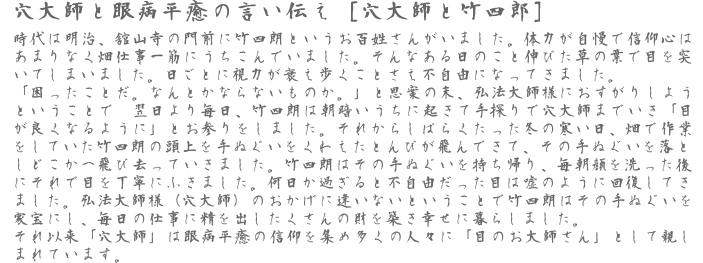 穴大師と眼病平癒の言い伝え [穴大師と竹四郎]
時代は明治、舘山寺の門前に竹四郎というお百姓さんがいました。体力が自慢で信仰心は
あまりなく畑仕事一筋にうちこんでいました。そんなある日のこと伸びた草の葉で目を突
いてしまいました。日ごとに視力が衰え歩くことさえ不自由になってきました。
「困ったことだ。なんとかならないものか。」と思案の末、弘法大師様におすがりしよう
ということで 翌日より毎日、竹四郎は朝暗いうちに起きて手探りで穴大師までいき「目
が良くなるように」とお参りをしました。それからしばらくたった冬の寒い日、畑で作業
をしていた竹四郎の頭上を手ぬぐいをくわえたとんびが飛んできて、その手ぬぐいを落と
しどこか一飛び去っていきました。竹四郎はその手ぬぐいを持ち帰り、毎朝顔を洗った後
にそれで目を丁寧にふきました。何日か過ぎると不自由だった目は嘘のように回復してき
ました。弘法大師様（穴大師）のおかげに違いないということで竹四郎はその手ぬぐいを
家宝にし、毎日の仕事に精を出したくさんの財を築き幸せに暮らしました。
それ以来「穴大師」は眼病平癒の信仰を集め多くの人々に「目のお大師さん」として親し
まれています。